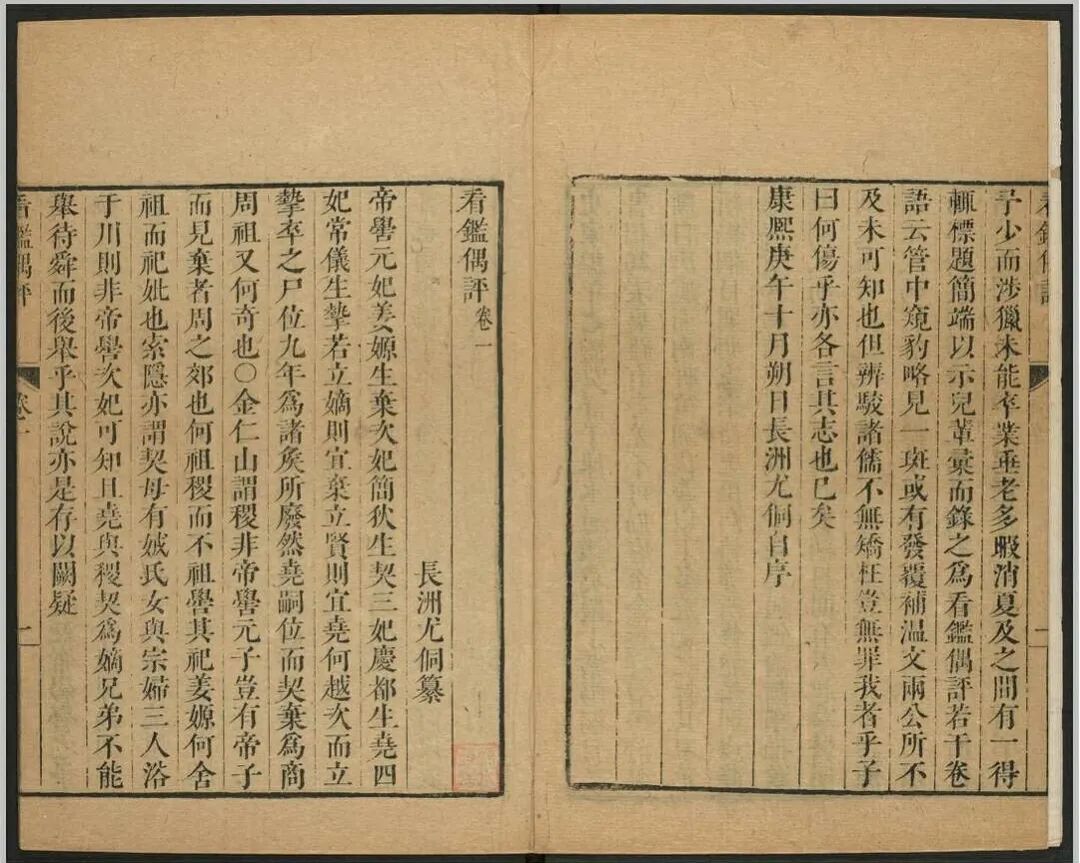 看鑑偶評
予少而涉獵未能卒業垂老多暇消夏及之間有一得
輒標題簡端以示兒輩彙而錄之爲看鑑偶評若干卷
語云管中窺豹略見一斑或有發覆補溫文兩公所不
及未可知也但辨駁諸儒不無矯枉豈無罪我者乎子
曰何傷乎亦各言其志也已矣
康熙庚午十月朔日長洲尤侗自序
看鑑偶評 卷一
長洲尤侗纂
帝嚳元妃姜嫄生棄次妃簡狄生契三妃慶都生堯四
妃常儀生摯若立嫡則宜棄立賢則宜堯何越次而立
摯卒之尸位九年爲諸矦所廢然堯嗣位而契棄爲商
周祖又何奇也〇金仁山謂稷非帝嚳元子豈有帝子
而見棄者周之郊也何祖稷而不祖嚳其祀姜嫄何舍
祖而祀妣也索隱亦謂契母有娀氏女與宗婦三人浴
于川則非帝嚳次妃可知且堯與稷契爲嫡兄弟不能
舉待舜而後舉乎其說亦是存以闕疑
看鑑偶評 卷一 一